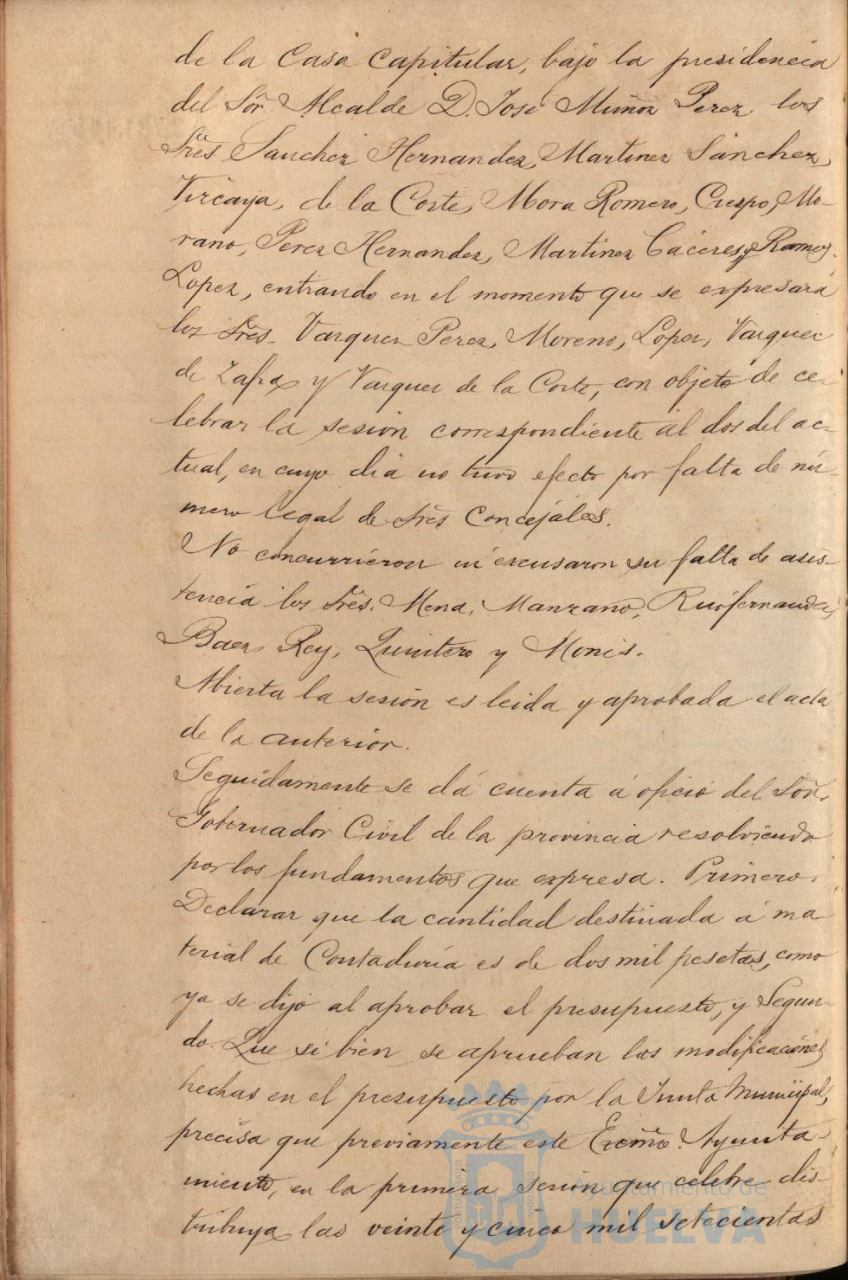 de la Casa Capitular, bajo la presidencia
del Sor. Alcalde D. José Muñoz Perez los
Sres Sanchez Hernandez, Martinez Sánchez,
Vizcaya, de la Corte, Mora Romero, Crespo, Mo-
rano, Perez Hernandez, Martinez Cáceres y Ramos
Lopez, entrando en el momento que se expresará
los Sres. Vazquez Perez, Moreno, López, Vazquez
de Zafra y Vazquez de la Corte, con objeto de ce-
lebrar la sesión correspondiente al dos del ac-
tual, en cuyo dia no tuvo efecto por falta de nú-
mero legal de Sres Concejales.
No concurrieron ni escusaron su falta de asis-
tencia los Sres. Mena, Manzano, Ruifernandez,
Baez, Rey, Quintero y Monis.
Abierta la sesión es leida y aprobada el acta
de la anterior.
Seguidamente se dá cuenta á oficio del Sor.
Gobernador Civil de la provincia resolviendo
por los fundamentos que expresa. Primero.
Declarar que la cantidad destinada á ma
terial de Contaduría es de dos mil pesetas, como
ya se dijo al aprobar el presupuesto, y Segun-
do. Que si bien se aprueban las modificaciones
hechas en el presupuesto por la Junta Municipal,
precisa que previamente este Excmo. Ayunta-
miento, en la primera sesión que celebre dis-
tribuya las veinte y cinco mil setecientas
Ayuntamiento de
HUELVA